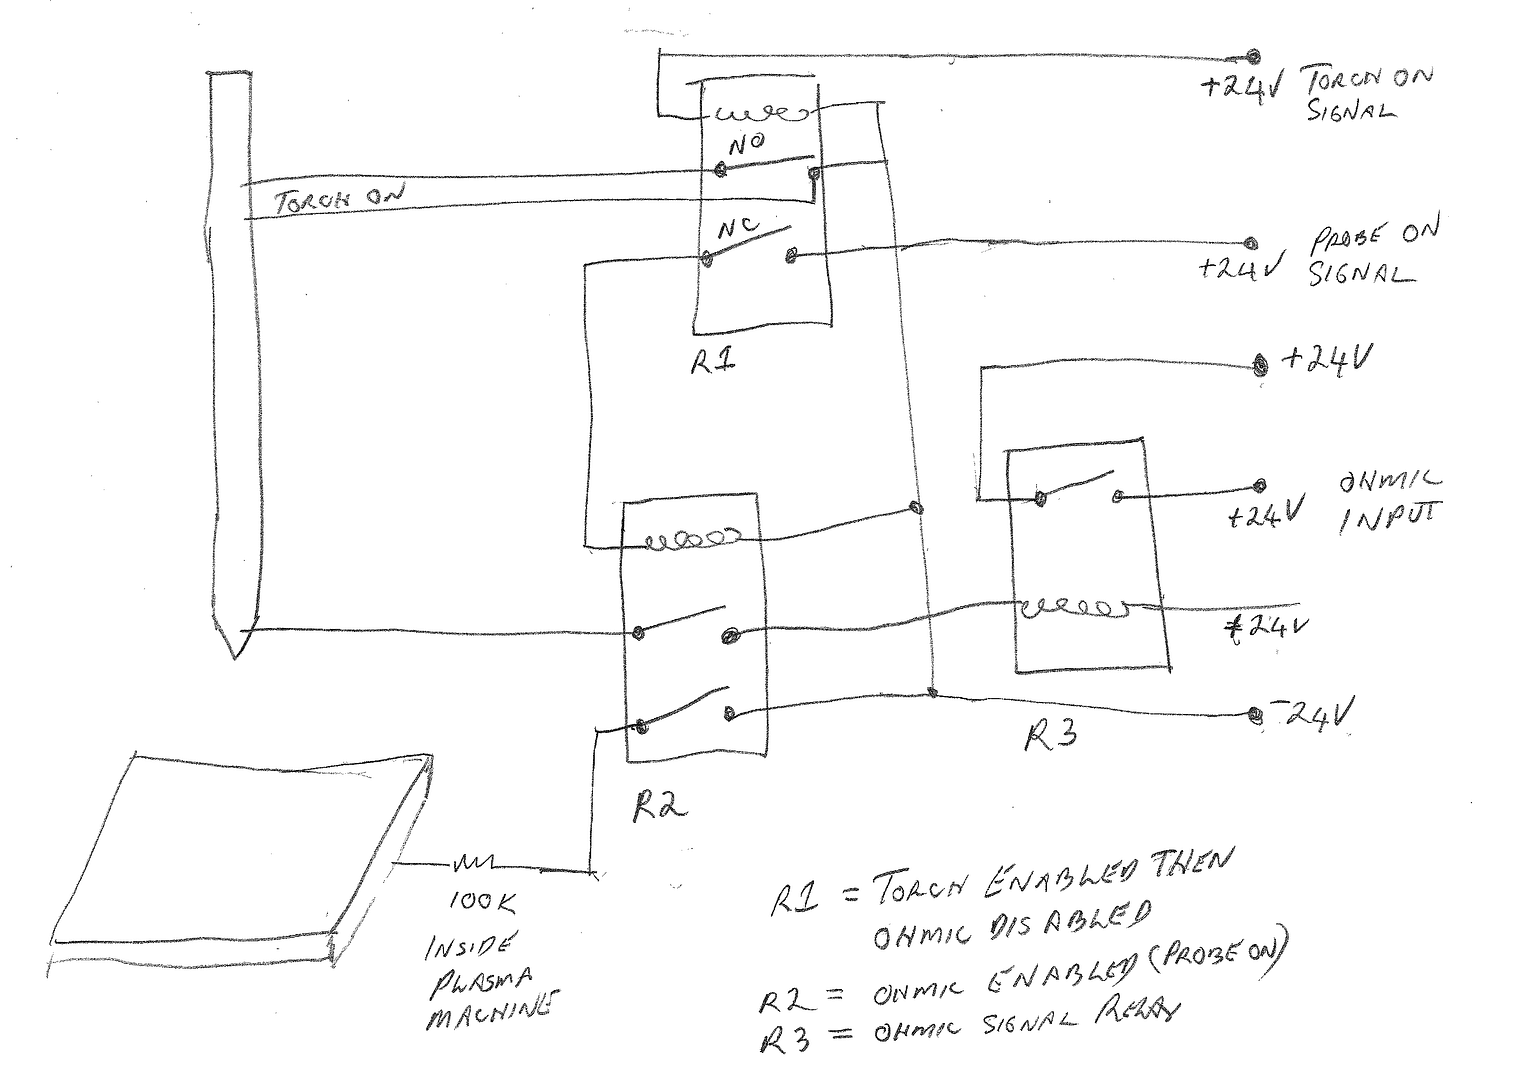 +24V TORCH ON
SIGNAL
NO
TORCH ON
NC
PROBE ON
+24V SIGNAL
R1
+24V
OHMIC
+24V INPUT
+24V
-24V
R3
R2
100K
INSIDE
PLASMA
MACHINE
R1 = TORCH ENABLED THEN
OHMIC DISABLED
R2 = OHMIC ENABLED (PROBE ON)
R3 = OHMIC SIGNAL RELAY